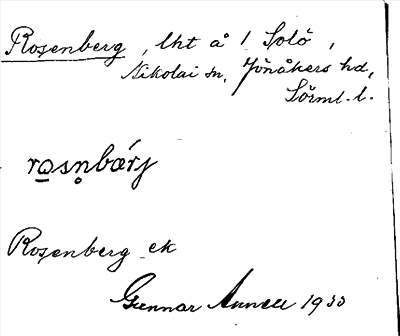 Rosenberg, lht å 1 Solö,
Nikolai sn, Jönåkers hd,
Sörml. l.
ro̲sn̥bærj
Rosenberg ek
Gunnar 1933